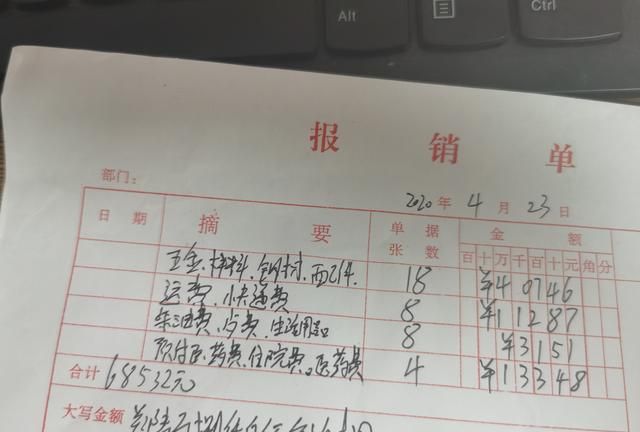 Alt
Ctrl
报销单
部门：
2020年4月23日
日期 摘要 单据张数 金额
百十万千百十元角分
五金、材料、钢材、配件. 18 ¥40746
运费、快递费 8 ¥11287
柴油费、房费、生活用品 8 ¥3151
预付医药费、住院费、医药费 4 ¥13348
合计 68532元
大写金额